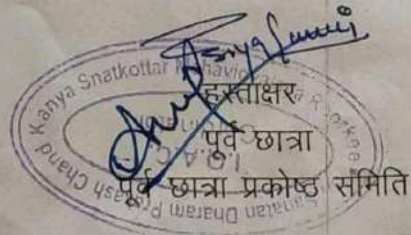 हस्ताक्षर
पूर्व छात्रा
पूर्व छात्रा प्रकोष्ठ समिति
Sanatan Dharam Prakash Chand Kanya Snatkottar Mahavidyalaya Roorkee
I.Q.A.C